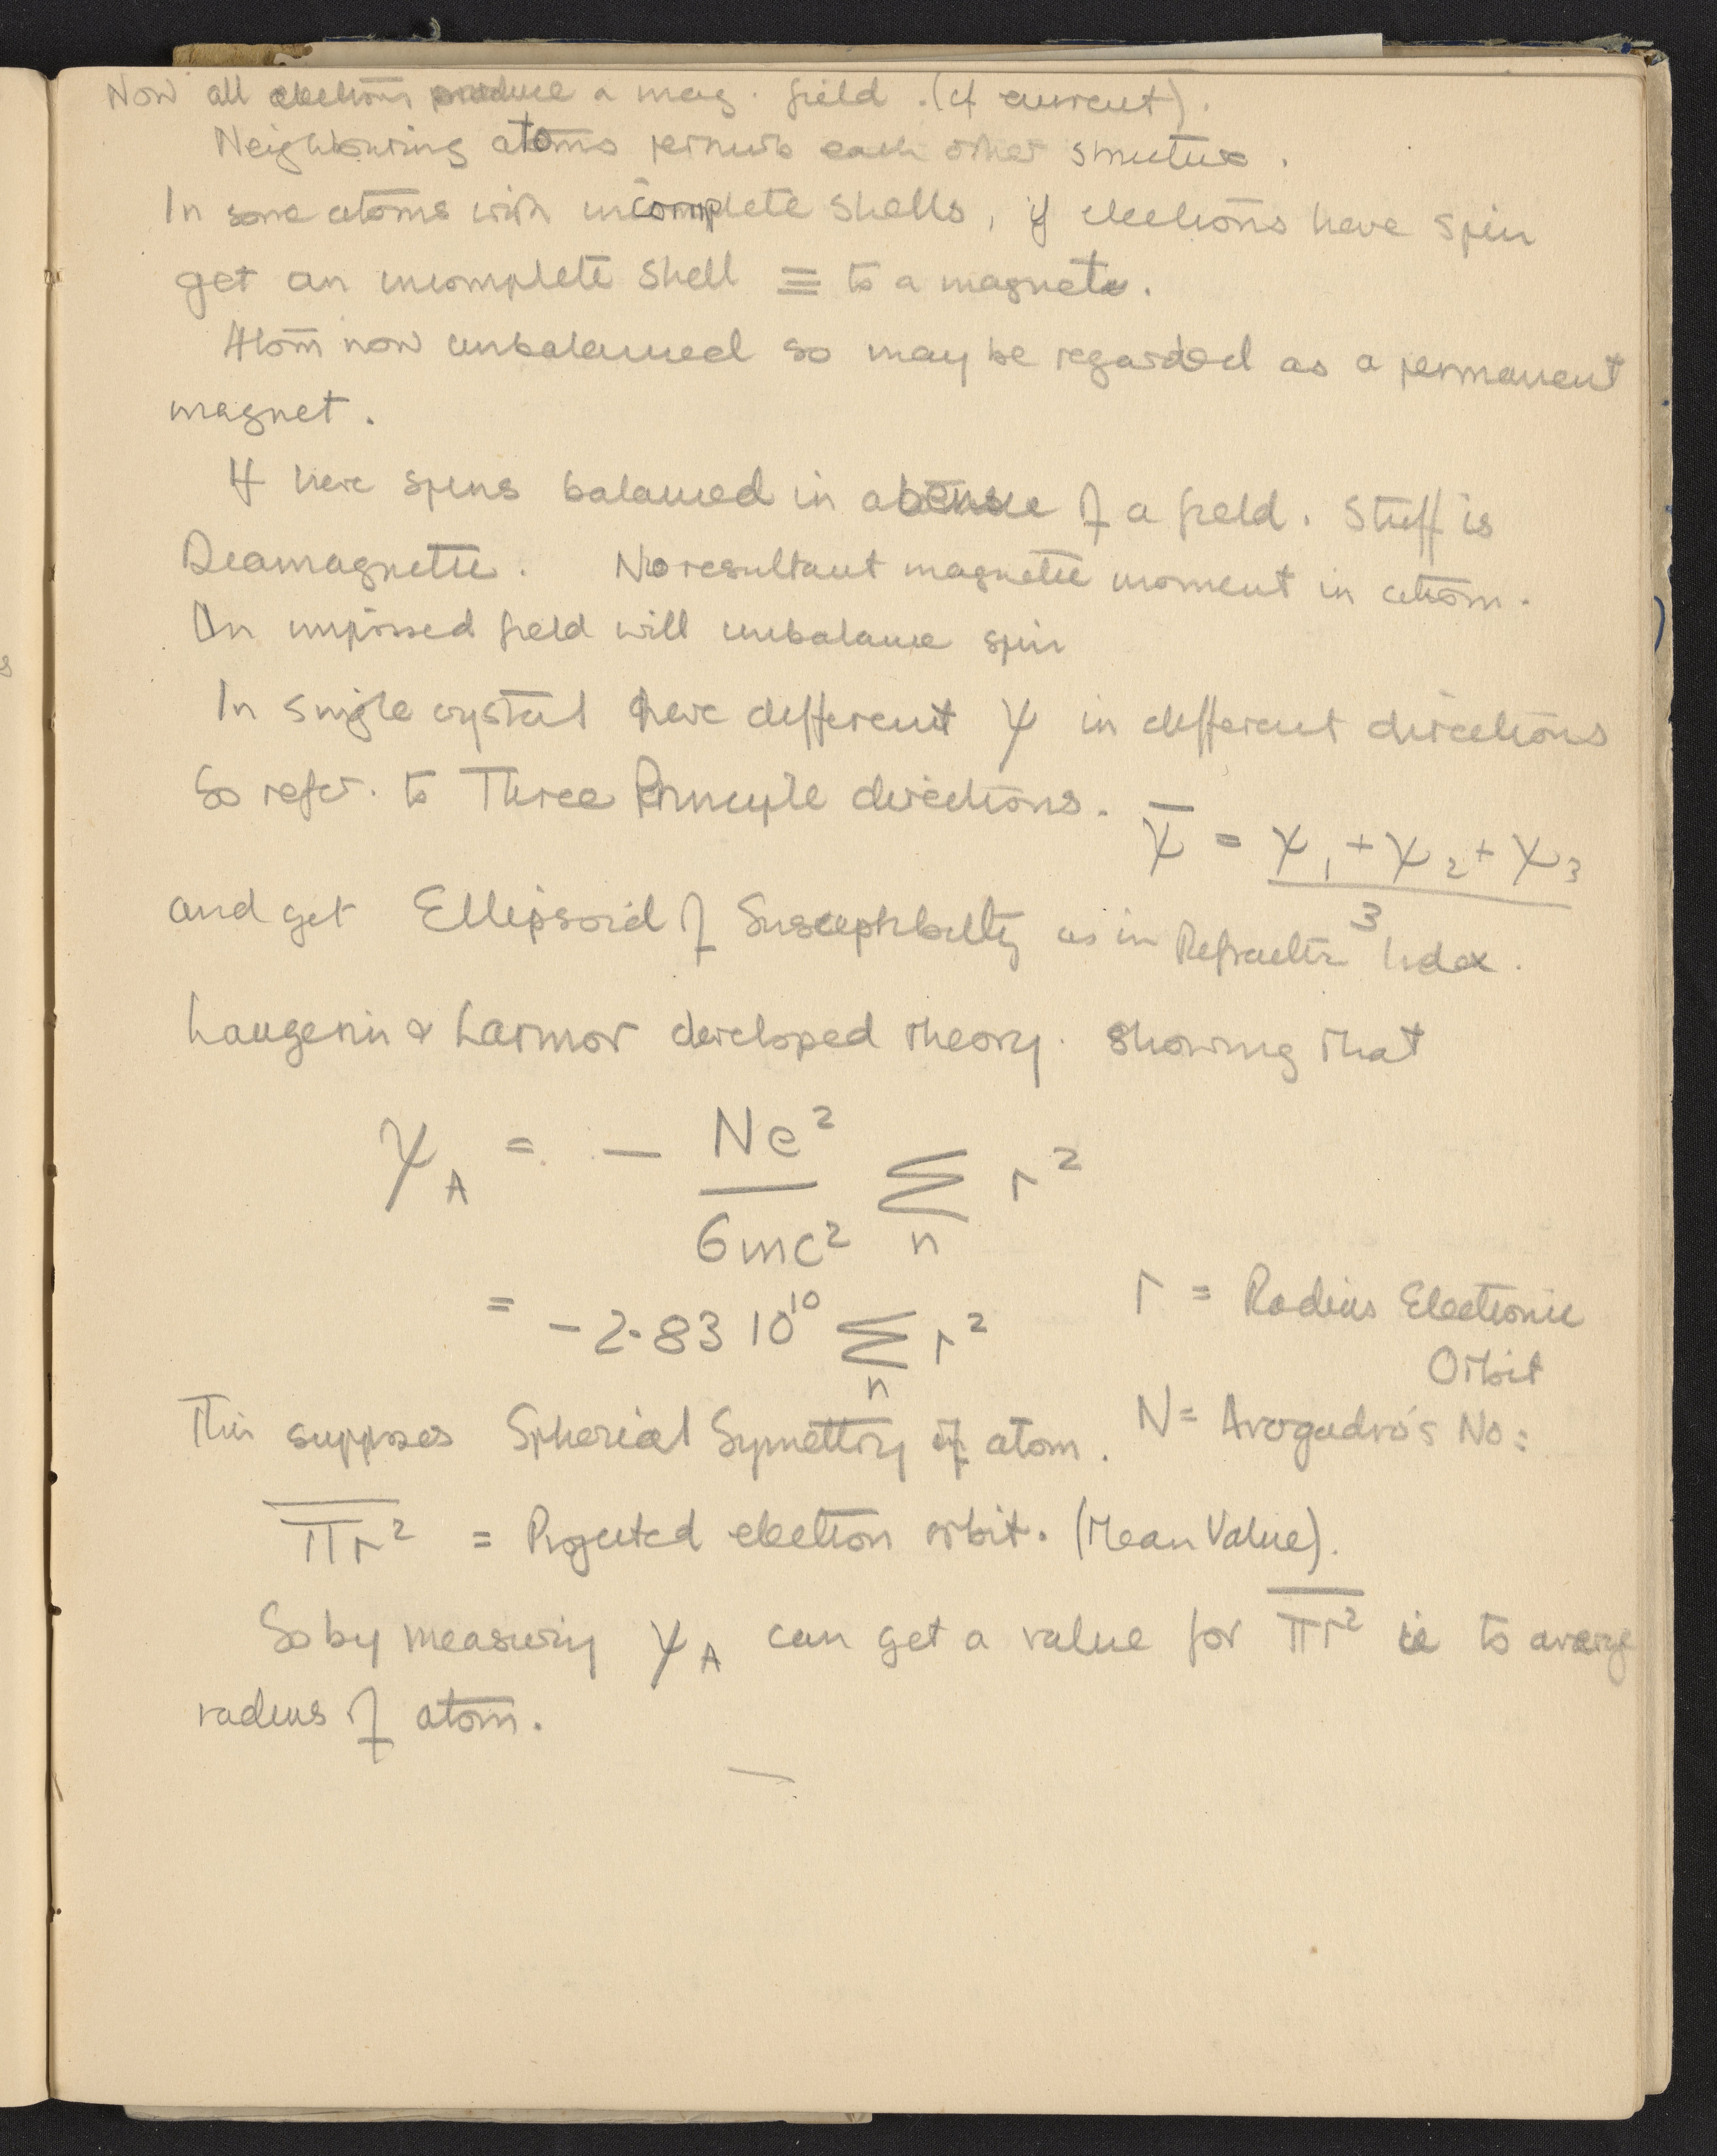 Now all electrons produce a mag. field. (cf current).
Neighbouring atoms perturb each other structure.
In some atoms with incomplete shells, if electrons have spin
get an incomplete shell ≡ to a magnet.
Atom now unbalanced so may be regarded as a permanent
magnet.
If have spins balanced in absence of a field. Stuff is
Diamagnetic. No resultant magnetic moment in atom.
An imposed field will unbalance spin
In single crystal have different χ in different directions
So refer. to Three Principle directions. χ̄ = (χ₁ + χ₂ + χ₃) / 3
and get Ellipsoid of Susceptibility as in Refractive Index.
Langevin & Larmor developed theory. showing that
χ_A = − Ne² / 6mc² Σ_n r²
= −2·83 10¹⁰ Σ_n r²
r = Radius Electronic
Orbit
This supposes Spherical Symettry of atom. N = Avogadro's No:
π̅r̅² = Projected electron orbit. (Mean Value).
So by measuring χ_A can get a value for π̅r̅² ie to average
radius of atom.